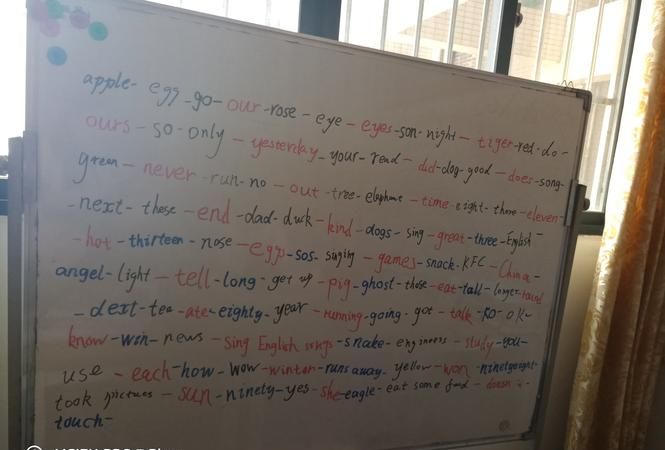 apple - egg - go - our - rose - eye - eyes - son - night - tiger - red - do -
ours - so - only - yesterday - your - read - did - dog - good - does - song -
green - never - run - no - out - tree - elephant - time - eight - three - eleven
- next - these - end - dad - duck - kind - dogs - sing - great - three - English -
- hot - thirteen - nose - eggs - sos - singing - games - snack - KFC - China -
angel - light - tell - long - get up - pig - ghost - those - eat - tall - longer -
- dext - tea - ate - eighty - year - running - going - got - talk - KO - OK -
know - win - news - sing English songs - snake - engineers - study - you -
use - each - how - wow - winter - runs away - yellow - won - ninety
took pictures - sun - ninety - yes - she - eagle - eat some food -
touch -